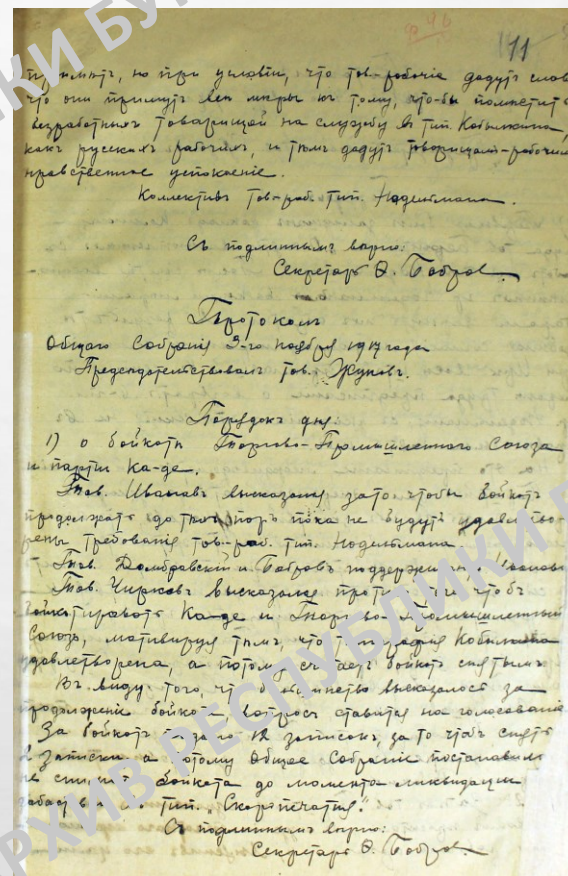 11
принять, но при условiи, что тов-рабочiе дадутъ слов
что они примутъ всѣ мѣры къ тому, что-бы помѣстить
безработныхъ товарищей на службу въ тип. Кобылкина,
какъ русскихъ рабочихъ, и тѣмъ дадутъ товарищамъ-рабочим
нравственное успокоенiе.
Коллективъ тов-раб. тип. Нодельмана.
Съ подлиннымъ вѣрно:
Секретарь Ѳ. Бобров
Протоколъ
Общаго Собранiя 3-го ноября 1917 года
Предсѣдательствовалъ тов. Жуковъ.
Порядокъ дня
1) о бойкотѣ Торгово-Промышленного Союза
и партiи ка-де.
Тов. Ивановъ высказался за то чтобы бойкотъ
продолжать до тѣхъ поръ пока не будутъ удовлетво-
рены требованiя тов-раб. тип. Нодельмана.
Тов. Домбравскiй и Бобровъ поддержив
Тов. Чирковъ высказался противъ того чтобъ
бойкотировать Ка-де и Торгово-Промышленный
Союзъ, мотивируя тѣмъ, что типографiя Кобылкина
удовлетворена, а потому считаетъ бойкотъ снятымъ
Въ виду того, что большинство высказалось за
продолженiе бойкота вопросъ ставится на голосованiе
За бойкотъ подано 12 записокъ за то чтобъ снять
2 записки а потому Общее Собранiе постановило
не снимать бойкота до момента ликвидацiи
забастовки въ тип. „Скоропечатня".
Съ подлиннымъ вѣрно:
Секретарь Ѳ. Бобров.
АРХИВ РЕСПУБЛИКИ БУ